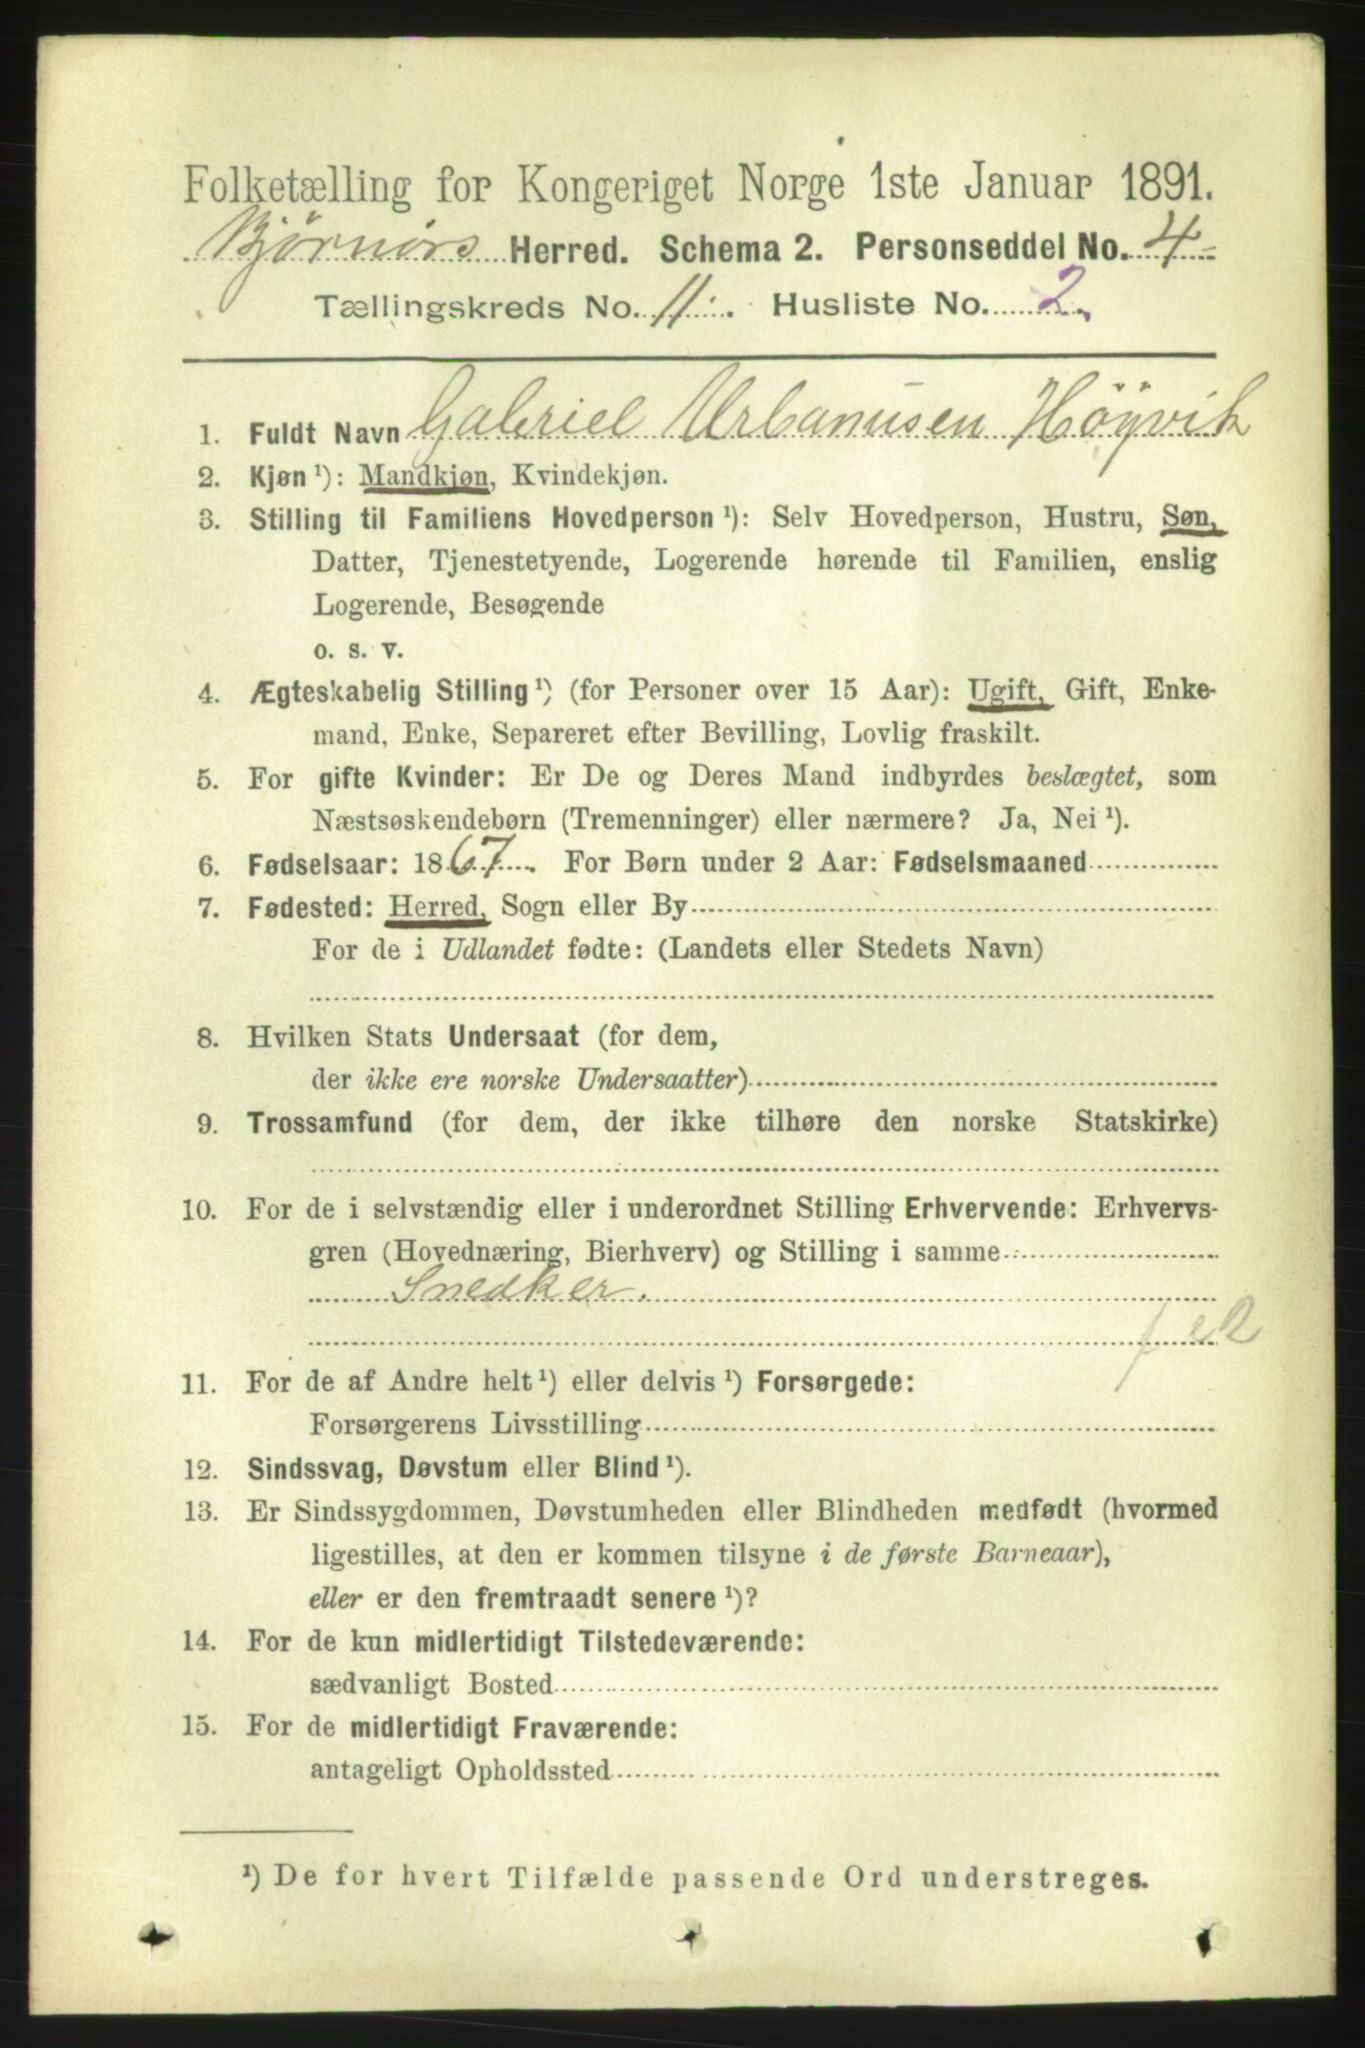 Folketælling for Kongeriget Norge 1ste Januar 1891.
Bjørnørs Herred. Schema 2. Personseddel No. 4
Tællingskreds No. 11. Husliste No. 2.
1. Fuldt Navn Gabriel Urbanusen Höyvik
2. Kjøn ¹): Mandkjøn, Kvindekjøn.
3. Stilling til Familiens Hovedperson ¹): Selv Hovedperson, Hustru, Søn,
Datter, Tjenestetyende, Logerende hørende til Familien, enslig
Logerende, Besøgende
o. s. v.
4. Ægteskabelig Stilling ¹) (for Personer over 15 Aar): Ugift, Gift, Enke-
mand, Enke, Separeret efter Bevilling, Lovlig fraskilt.
5. For gifte Kvinder: Er De og Deres Mand indbyrdes beslægtet, som
Næstsøskendebørn (Tremenninger) eller nærmere? Ja, Nei ¹).
6. Fødselsaar: 1867. For Børn under 2 Aar: Fødselsmaaned
7. Fødested: Herred, Sogn eller By
For de i Udlandet fødte: (Landets eller Stedets Navn)
8. Hvilken Stats Undersaat (for dem,
der ikke ere norske Undersaatter)
9. Trossamfund (for dem, der ikke tilhøre den norske Statskirke)
10. For de i selvstændig eller i underordnet Stilling Erhvervende: Erhvervs-
gren (Hovednæring, Bierhverv) og Stilling i samme
Snedker.
11. For de af Andre helt ¹) eller delvis ¹) Forsørgede:
Forsørgerens Livsstilling
12. Sindssvag, Døvstum eller Blind ¹).
13. Er Sindssygdommen, Døvstumheden eller Blindheden medfødt (hvormed
ligestilles, at den er kommen tilsyne i de første Barneaar),
eller er den fremtraadt senere ¹)?
14. For de kun midlertidigt Tilstedeværende:
sædvanligt Bosted
15. For de midlertidigt Fraværende:
antageligt Opholdssted
¹) De for hvert Tilfælde passende Ord understreges.